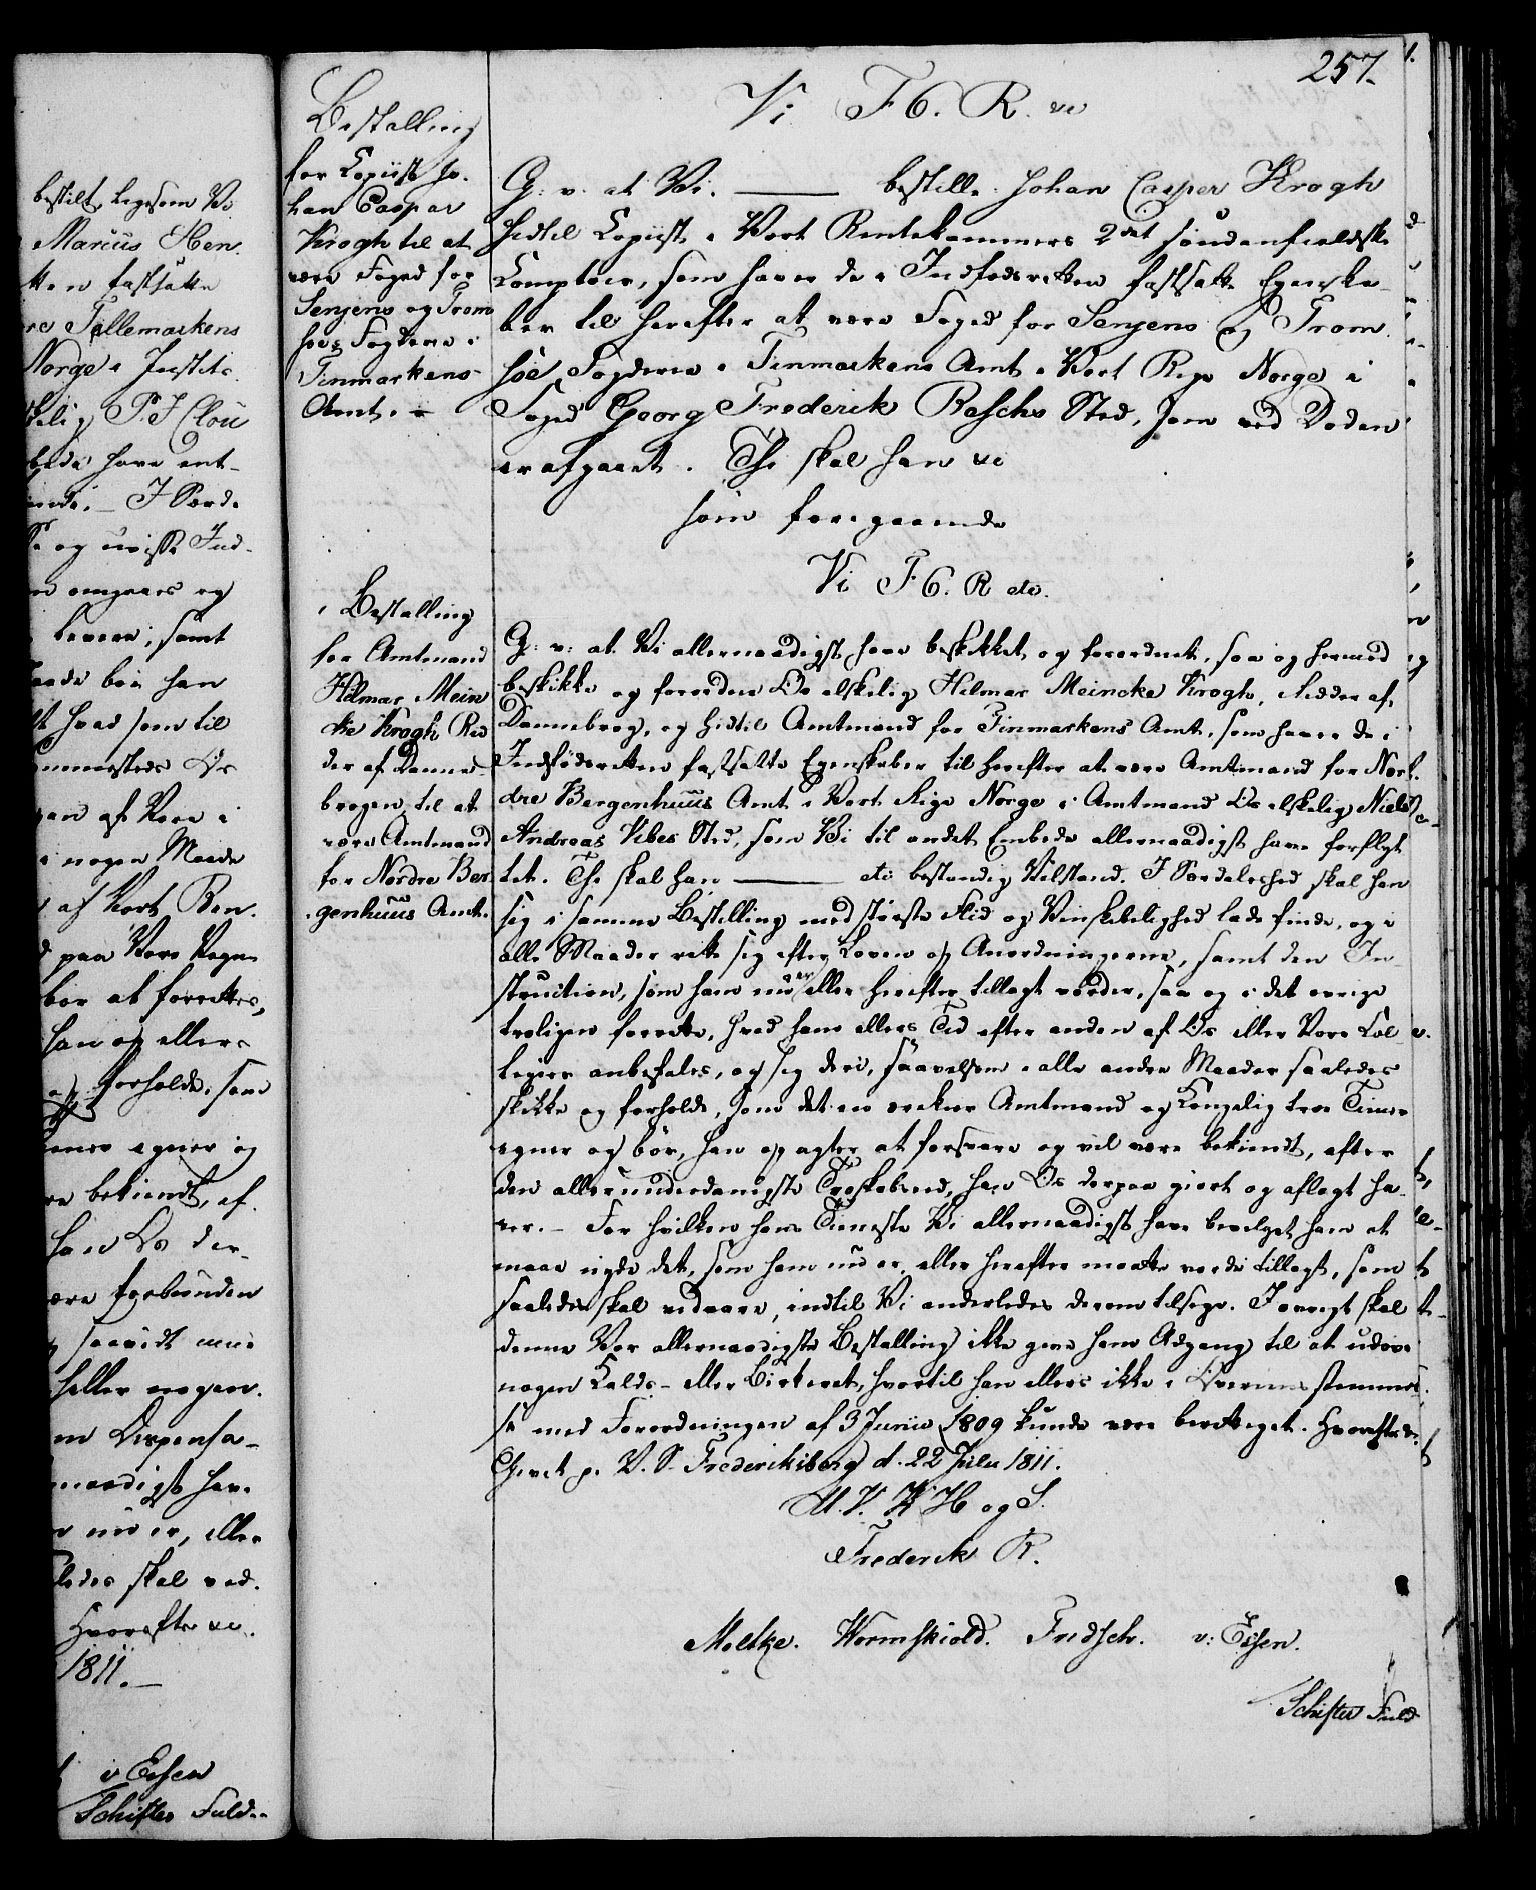 257.
Bestalling
for Copiist Jo-
han Caspar
Krogh til at
være Foged for
Senjens og Trom
söes Fogderie i
Finmarkens
Amt. -
Vi F 6. R. &c
G: v: at Vi. ——— bestille Johan Casper Krogh
hidtil Copiist i Vort Rentekammers 2det söndenfieldske
Comptoir, som haver de i Indfödsretten fastsatte Egenska-
ber til herefter at være Foged for Senjens og Trom
söe Fogderie i Finmarkens Amt i Vort Rige Norge i
Foged Georg Frederik Raschs Sted, som ved Döden
er afgaaet. Thi skal han &c
som foregaaende
Vi F 6. R etc.
Bestalling
for Amtmand
Hilmar Mein
cke Krogh Rid
der af Danne-
brogen, til at
være Amtmand
for Nordre Ber
genhuus Amt.
G: v: at Vi allernaadigst have beskikket og forordnet, saa og hermed
beskikke og forordne Os elskelig Hilmar Meincke Krogh, Ridder af
Dannebrog, og hidtil Amtmand for Finmarkens Amt, som haver de i
Indfödsretten fastsatte Egenskaber til herefter at være Amtmand for Nor-
dre Bergenhuus Amt i Vort Rige Norge i Amtmand Os elskelig Niels
Andreas Vibes Sted, som Vi til andet Embede allernaadigst have forflyt
tet. Thi skal han ——— etc bestandig Velstand. I Særdeleshed skal han
sig i samme Bestilling med störste Flid og Vinskibelighed lade finde, og i
alle Maader rette sig efter Loven og Anordningerne, samt den In-
struction, som ham nu er eller herefter tillagt vorder, saa og i det övrige
troligen forrette, hvad ham ellers Tid efter anden af Os eller Vore Col-
legier anbefales, og sig deri, saavelsom i alle andre Maader saaledes
skikke og forholde, som det en ærekier Amtmand og Kongelig troe Tiener
egner og bör, han og agter at forsvare og vil være bekiendt, efter
den allerunderdanigste Troskabseed, han Os derpaa giort og aflagt ha-
ver. - For hvilken hans Tieneste Vi allernaadigst have bevilget ham at
maae nyde det, som ham nu er, eller herefter maatte vorde tillagt, som
saaledes skal vedvare, indtil Vi anderledes derom tilsige. I övrigt skal
denne Vor allernaadigste Bestalling ikke give ham Adgang til at udöve
nogen Kalds- eller Birkeret, hvortil han ellers ikke i Overeensstemmel-
se med Forordningen af 3 Junii 1809 kunde være berettiget. Hvorefter &c.
Givet p. V. S. Frederiksberg d. 22 Julii 1811.
U. V. K H og S.
Frederik R.
Moltke. Wormskiold. Fridsch. v: Essen.
Schifter Fuld
bestilt, ligesom Vi
Marius Hen
tten fastsatte
Tellemarkens
Norge i Justits
elig P. J Clou
bede have ent-
I Særde
og uvisse Ind-
omgaaes og
levere, samt
aade bör han
hvad som til
ommesteds Os
gan af Vore i
i nogen Maade
af Vort Ren.
d paa Vore Vegne
bör at forrettes,
han og ellers
og forholde, som
iener egner og
re bekiendt, ef.
han Os der-
ære forbunden
saavidt mue
heller nogen.
en Dispensa-
naadigst have
nu er, eller
ledes skal ved.
Hvorefter &c.
1811. -
v Essen
Schifter Fuld..